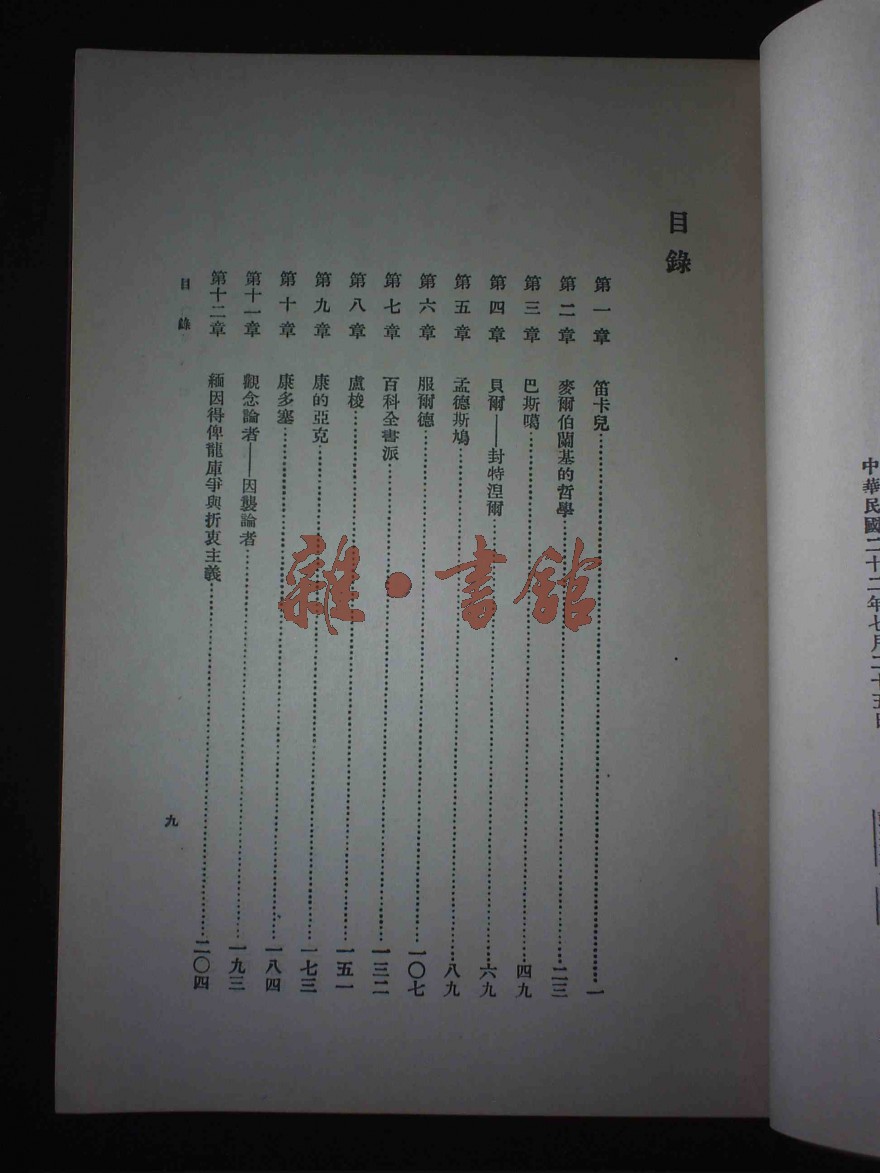 中華民國二十二年七月二十五日
目錄
第一章 笛卡兒………一
第二章 麥爾伯蘭基的哲學………二三
第三章 巴斯噶………四九
第四章 貝爾——封特涅爾………六九
第五章 孟德斯鳩………八九
第六章 服爾德………一〇七
第七章 百科全書派………一三二
第八章 盧梭………一五一
第九章 康的亞克………一七三
第十章 康多塞………一八四
第十一章 觀念論者——因襲論者………一九三
第十二章 緬因得俾龍庫爭與折衷主義………二〇四
目錄
九
雜·書館